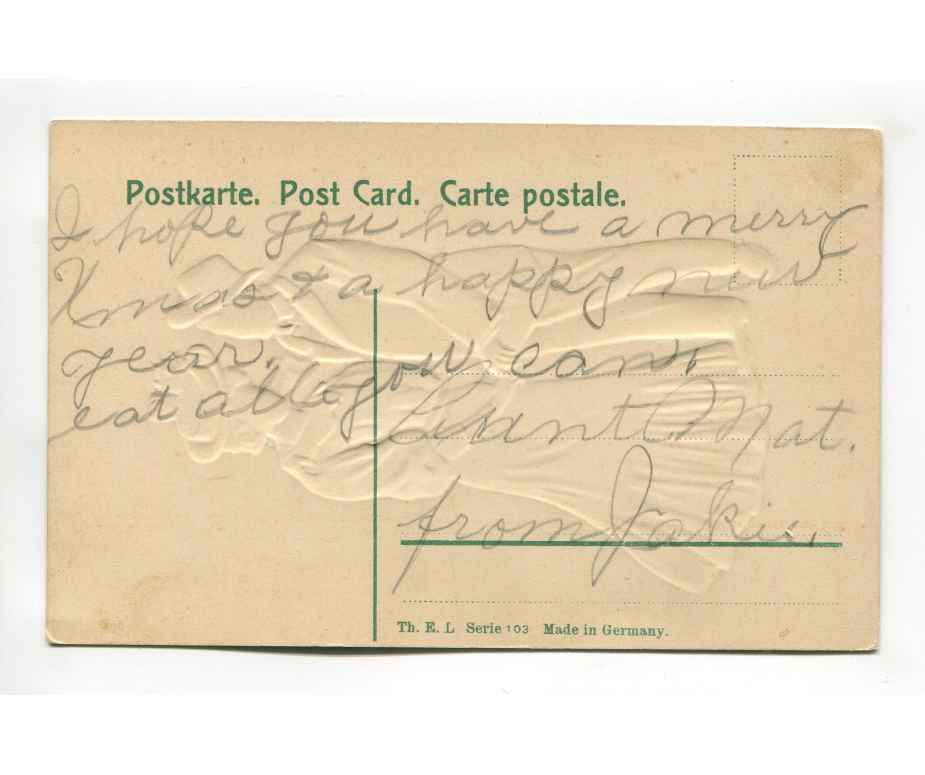 Postkarte. Post Card. Carte postale.
I hope you have a merry
Xmas & a happy new
year,
eat all you can.
Aunt Mat.
from Jakie.
Th. E. L Serie 103 Made in Germany.